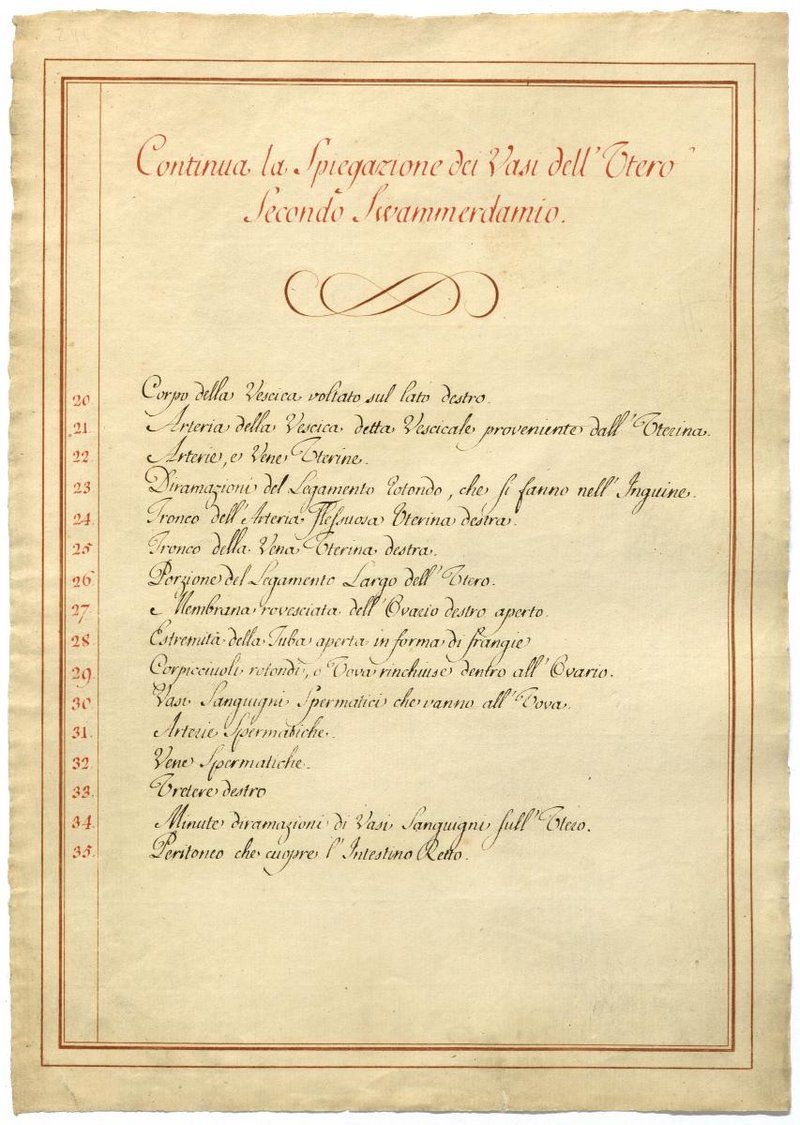 Continua la Spiegazione dei Vasi dell' Utero
Secondo Swammerdamio.
20. Corpo della Vescica voltato sul lato destro.
21. Arteria della Vescica detta Vescicale proveniente dall' Uterina.
22. Arterie, e Vene Uterine.
23. Diramazioni del Legamento Rotondo, che si fanno nell' Inguine.
24. Tronco dell' Arteria Flessuosa Uterina destra.
25. Tronco della Vena Uterina destra.
26. Porzione del Legamento Largo dell' Utero.
27. Membrana rovesciata dell' Ovario destro aperto.
28. Estremità della Tuba aperta in forma di frangie
29. Corpicciuoli rotondi, o Vova rinchiuse dentro all' Ovario.
30. Vasi Sanguigni Spermatici che vanno all' Vova.
31. Arterie Spermatiche.
32. Vene Spermatiche.
33. Uretere destro
34. Minute diramazioni di Vasi Sanguigni sull' Utero.
35. Peritoneo che cuopre l' Intestino Retto.